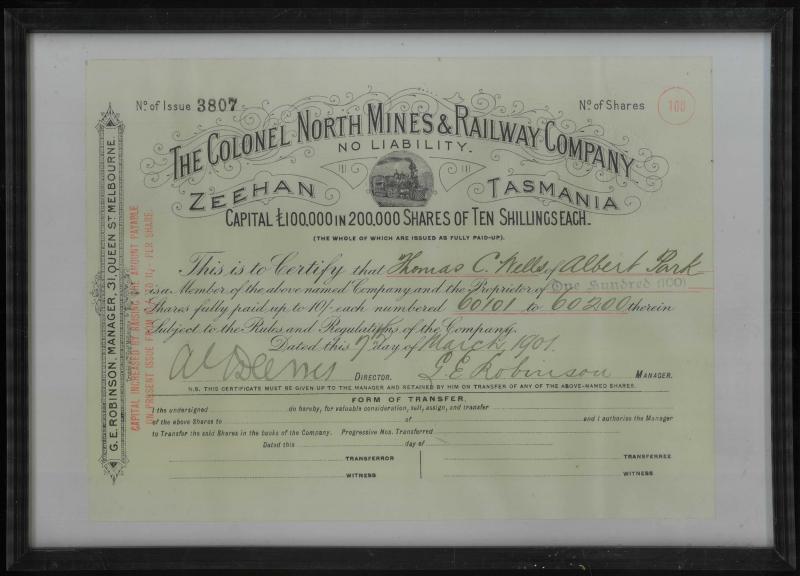 No. of Issue 3807
No. of Shares 100
THE COLONEL NORTH MINES & RAILWAY COMPANY
NO LIABILITY.
ZEEHAN TASMANIA
CAPITAL £100,000 IN 200,000 SHARES OF TEN SHILLINGS EACH.
(THE WHOLE OF WHICH ARE ISSUED AS FULLY PAID-UP).
This is to Certify that Thomas C. Wells of Albert Park
is a Member of the above named Company and the Proprietor of One Hundred (100)
Shares fully paid up to 10/- each numbered 60101 to 60200 therein
Subject to the Rules and Regulations of the Company.
Dated this 7th day of March, 1901.
DIRECTOR. G. E. Robinson MANAGER.
N.B. THIS CERTIFICATE MUST BE GIVEN UP TO THE MANAGER AND RETAINED BY HIM ON TRANSFER OF ANY OF THE ABOVE-NAMED SHARES.
FORM OF TRANSFER.
I the undersigned do hereby, for valuable consideration, sell, assign, and transfer
of the above Shares to of and I authorise the Manager
to Transfer the said Shares in the books of the Company. Progressive Nos. Transferred
Dated this day of
TRANSFERROR TRANSFEREE
WITNESS WITNESS
G. E. ROBINSON, MANAGER, 31, QUEEN ST MELBOURNE.
CAPITAL INCREASED BY RAISING THE AMOUNT PAYABLE
ON PRESENT ISSUE FROM TO 11/- PER SHARE.